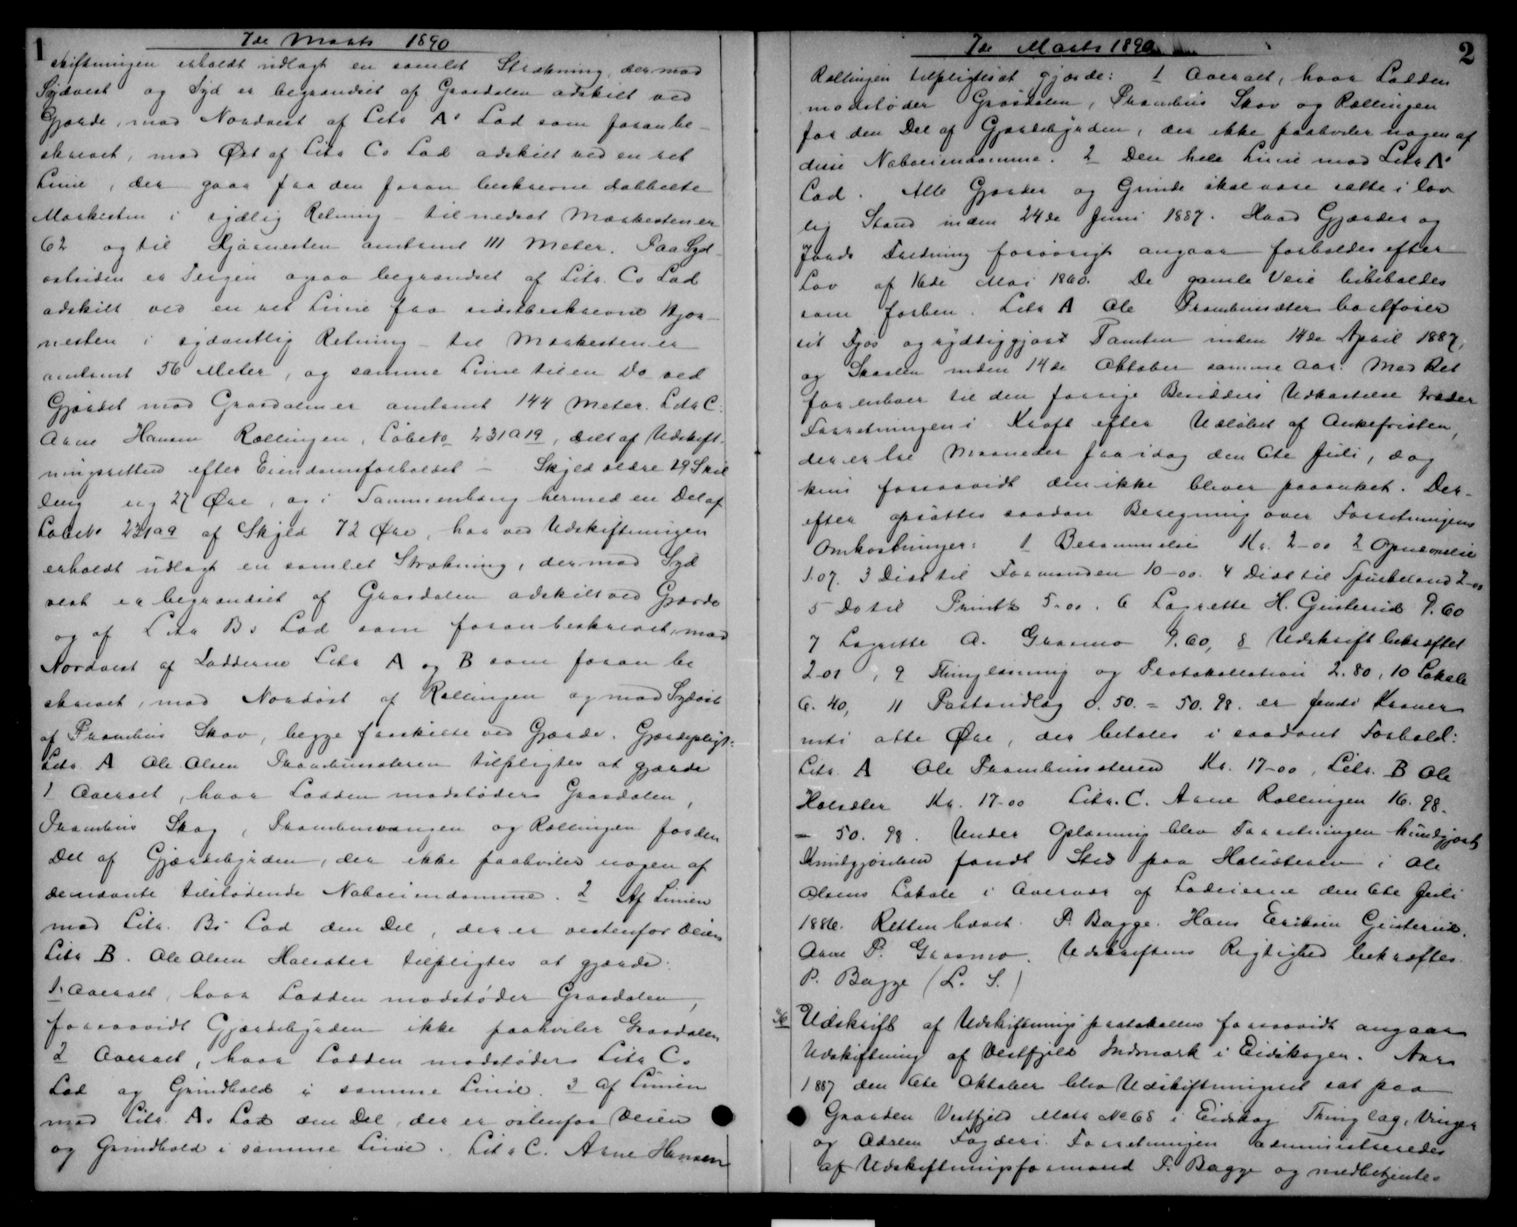 1
7de Marts 1890
skiftningen erholdt udlagt en samlet Strækning, der mod
Sydvest og Syd er begrændset af Graadalen adskilt ved
Gjærde, mod Nordvest af Litr A's Lod som foran be-
skrevet, mod Øst af Litr Cs Lod adskilt ved en ret
Linie, der gaar fra den foran beskrevne dobbelte
Markesten i sydlig Retning til nedsat Markesten er
62 og til Hjørnesten omtrent 111 Meter. Paa Syd-
ostsiden er Teigen ogsaa begrændset af Litr. Cs Lod
adskilt ved en ret Linie fra sidstbeskrevne Hjør-
nesten i sydvestlig Retning til Markesten er
omtrent 56 Meter, og samme Linie til en Do ved
Gjærdet mod Graadalen er omtrent 144 Meter. Litr C.
Arne Hansen Rællingen, LøbeNo 231a19, delt af Udskift-
ningsretten efter Eiendomsforholdet – Skyld ældre 29 Skil
ling ny 27 Øre, og i Sammenhæng hermed en Del af
LøbeNo 231a9 af Skyld 72 Øre, har ved Udskiftningen
erholdt udlagt en samlet Strækning, der mod Syd
vest er begrændset af Graadalen adskilt ved Gjærde
og af Litr Bs Lod som foran beskrevet, mod
Nordvest af Lodderne Litr A og B som foran be
skrevet, mod Nordøst af Rællingen og mod Sydøst
af Prambus Skov, begge forskilte ved Gjærde. Gjærdepligt:
Litr. A Ole Olsen Prambusæteren tilpligtes at gjærde
1 Overalt, hvor Lodden modstøder Graadalen,
Prambus Skog, Prambuvangen og Rællingen for den
Del af Gjærdebyrden, der ikke paahviler nogen af
de nævnte tilstødende Naboeiendomme. 2 Af Linien
mod Litr. Bs Lod den Del, der er vestenfor Veien
Litr B. Ole Olsen Halsæter tilpligtes at gjærde:
1. Overalt, hvor Lodden modstøder Graadalen,
forsaavidt Gjærdebyrden ikke paahviler Graadalen
2 Overalt, hvor Lodden modstøder Litr Cs
Lod og Grindhold i samme Linie. 3 Af Linien
mod Litr. As Lod den Del, der er østenfor Veien
og Grindhold i samme Linie. Litr C. Arne Hansen
2
7de Marts 1890
Rællingen tilpligtes at gjærde: 1 Overalt, hvor Lodden
modstøder Graadalen, Prambus Skov og Rællingen
for den Del af Gjærdebyrden, der ikke paahviler nogen af
disse Naboeiendomme. 2 Den hele Linie mod Litr A's
Lod. Alle Gjærder og Grinde skal være satte i lov
lig Stand inden 24de Juni 1887. Hvad Gjærder og
Jords Fredning forøvrigt angaar forholdes efter
Lov af 16de Mai 1860. De gamle Veie bibeholdes
som forhen. Litr A Ole Prambusæter bortfører
sit Fjøs og rydiggjør Tomten inden 14de April 1887,
og Skaalen inden 14de Oktober samme Aar. Med Ret
for enhver til den forrige Besidders Udkastelse træder
Forretningen i Kraft efter Udløbet af Ankefristen,
der er tre Maaneder fra idag den 6te Juli, dog
kun forsaavidt den ikke bliver paaanket. Der-
efter opsattes saadan Beregning over Forretningens
Omkostninger: 1 Berammelse Kr. 2-00 2 Opnævnelse
1.07. 3 Diæt til Formanden 10-00. 4 Diæt til Spurkeland 2-00
5 Do til Printz 5-00. 6 Lagrette H. Gisterud 9.60
7 Lagrette A. Graamo 9.60, 8 Udskrift bekræftet
2-01, 9 Thinglæsning og Protokollation 2.80, 10 Lokale
6.40, 11 Postandlag 0.50. = 50.98. er femti Kroner
nitti otte Øre, der betales i saadant Forhold:
Litr. A Ole Prambusæteren Kr. 17-00, Litr. B Ole
Halsæter Kr. 17-00 Litr. C. Arne Rællingen 16.98.
– 50.98. Under Oplæsning blev Forretningen kundgjort
Kundgjørelsen fandt Sted paa Halsæteren i Ole
Olsens Lokale i Overvær af Lodeierne den 6te Juli
1886. Retten hævet. P. Bagge. Hans Eriksen Gisterud.
Arne P. Graamo. Udskriftens Rigtighed bekræftes.
P. Bagge (L. S.)
Udskrift af Udskiftningsprotokollen forsaavidt angaar
Udskiftning af Vestfjeld Indmark i Eidskogen. Aar
1887 den 6te Oktober blev Udskiftningsret sat paa
Gaarden Vestfjeld Matr No 68 i Eidskog Thinglag, Vinger
og Odalen Fogderi. Forretningen administreredes
af Udskiftningsformand P. Bagge og medbetjentes